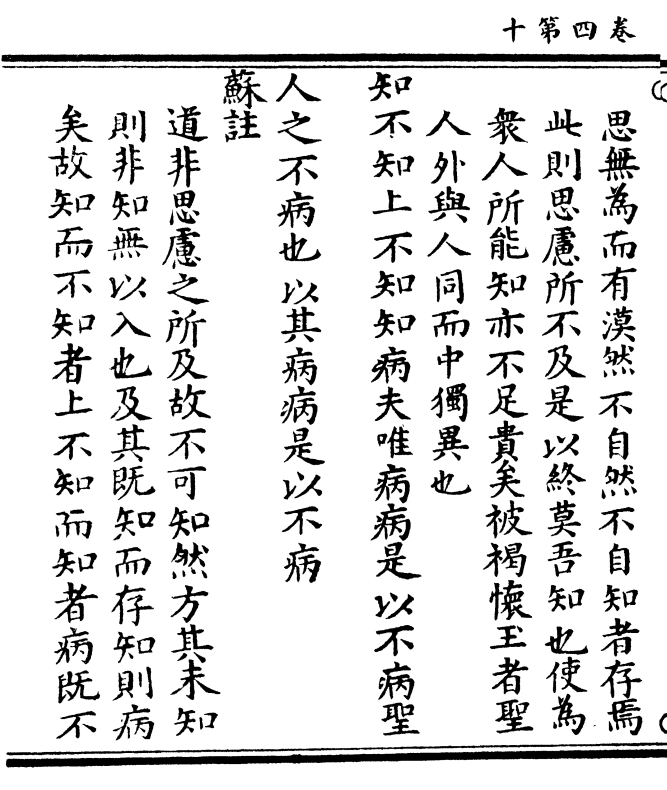 卷四第十
思無為而有漠然不自然不自知者存焉
此則思慮所不及是以終莫吾知也使為
衆人所能知亦不足貴矣被褐懷玉者聖
人外與人同而中獨異也
知不知上不知知病夫唯病病是以不病聖
人之不病也以其病病是以不病
蘇註
道非思慮之所及故不可知然方其未知
則非知無以入也及其既知而存知則病
矣故知而不知者上不知而知者病既不